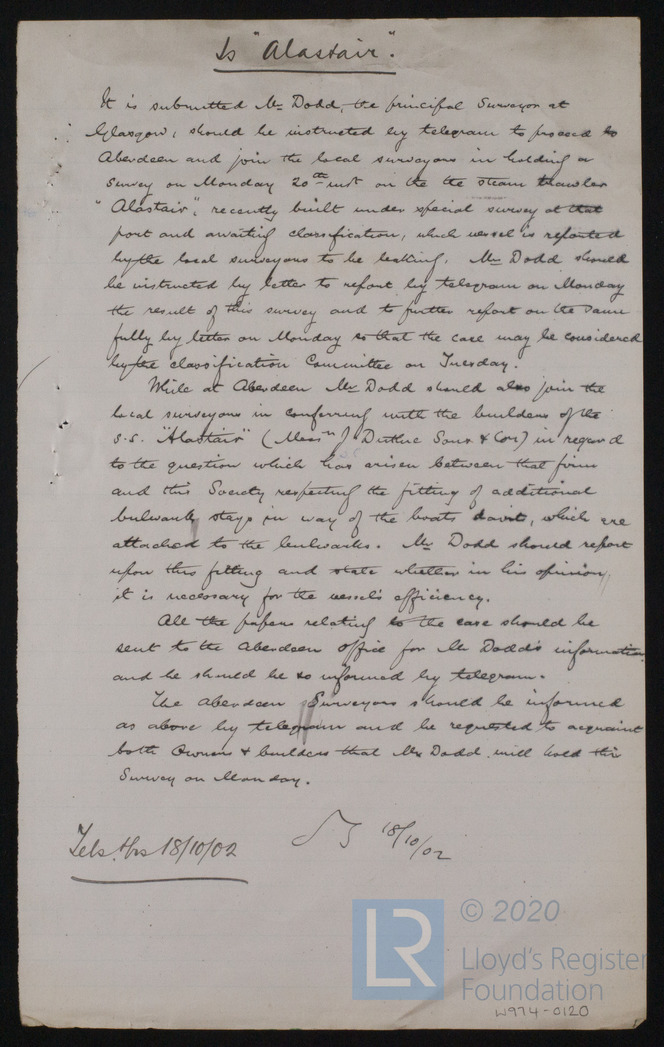 Is "Alastair".
It is submitted Mr Dodd, the principal Surveyor at
Glasgow, should be instructed by telegram to proceed to
Aberdeen and join the local surveyors in holding a
Survey on Monday 20th inst on the the steam trawler
"Alastair", recently built under special survey at that
port and awaiting classification, which vessel is reported
by the local surveyors to be leaking. Mr Dodd should
be instructed by letter to report by telegram on Monday
the result of this survey and to further report on the same
fully by letter on Monday so that the case may be considered
by the classification Committee on Tuesday.
While at Aberdeen Mr Dodd should also join the
local surveyors in conferring with the builders of the
S.S. "Alastair" (Messrs J. Duthie Sons & Co) in regard
to the question which has arisen between that firm
and this Society respecting the fitting of additional
bulwark stays in way of the boats davits, which are
attached to the bulwarks. Mr Dodd should report
upon this fitting and state whether in his opinion,
it is necessary for the vessel's efficiency.
All the papers relating to the case should be
sent to the Aberdeen office for Mr Dodd's information
and he should be so informed by telegram.
The Aberdeen Surveyors should be informed
as above by telegram and be requested to acquaint
both Owners & builders that Mr Dodd will hold this
Survey on Monday.
18/10/02
18/10/02
LR
© 2020
Lloyd's Register
Foundation
W974-0120